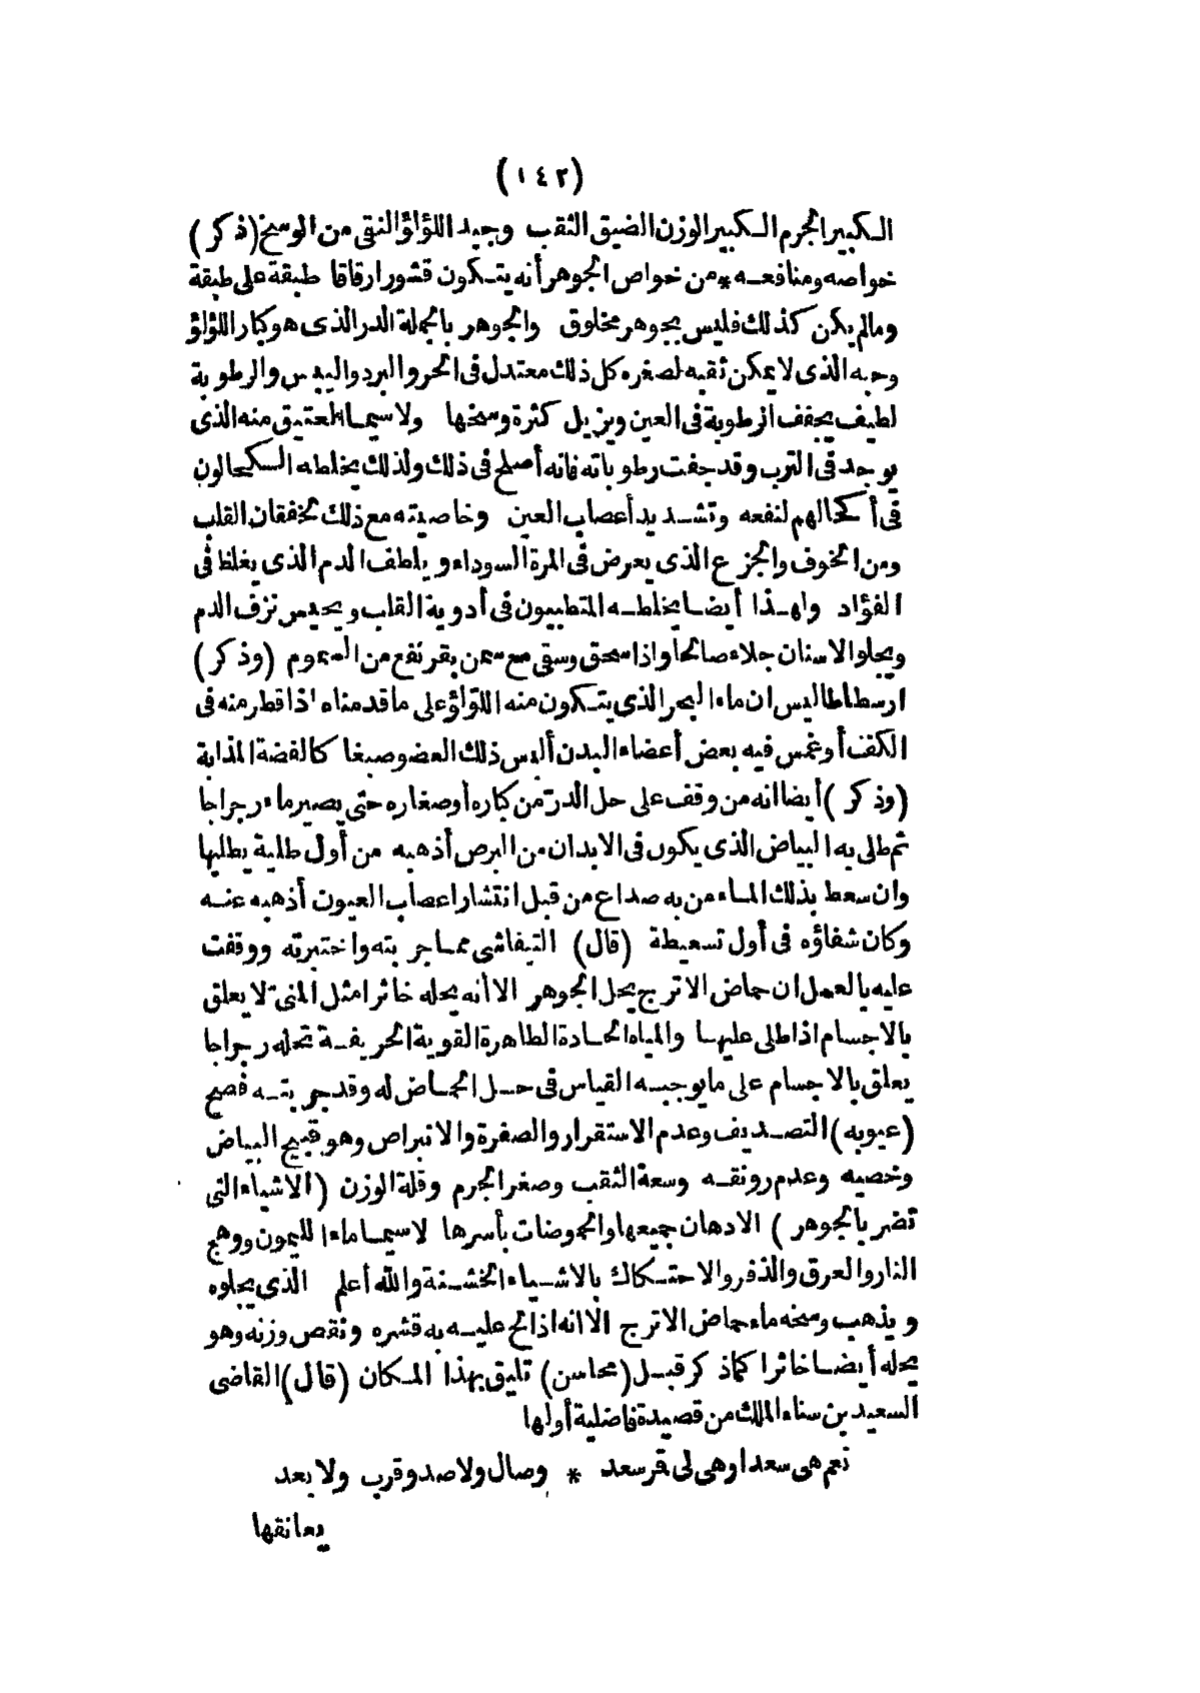 (١٤٢)
الكبير الجرم الكبير الوزن الضيق الثقب وجيد اللؤلؤ النقى من الوسخ (ذكر)
خواصه ومنافعه * من خواص الجوهر أنه يتكون قشورا رقاقا طبقة على طبقة
ومالم يكن كذلك فليس بجوهر مخلوق والجوهر بالجملة الدر الذى هو كبار اللؤلؤ
وحبه الذى لا يمكن ثقبه لصغره كل ذلك معتدل فى الحر والبرد واليبس والرطوبة
لطيف يجفف الرطوبة فى العين ويزيل كثرة وسخها ولا سيما العتيق منه الذى
يوجد فى الترب وقد جفت رطوباته فانه أصلح فى ذلك ولذلك يخلطه الكحالون
فى أكحالهم لنفعه وتشديد أعصاب العين وخاصيته مع ذلك لخفقان القلب
ومن الخوف والجزع الذى يعرض فى المرة السوداء ويلطف الدم الذى يغلظ فى
الفؤاد ولهذا أيضا يخلطه المتطببون فى أدوية القلب ويحبس نزف الدم
ويجلو الاسنان جلاء صالحا واذا سحق وسقى مع سمن بقر نفع من السموم (وذكر)
ارسطاطاليس ان ماء البحر الذى يتكون منه اللؤلؤ على ما قدمناه اذا قطر منه فى
الكف أو غمس فيه بعض أعضاء البدن ألبس ذلك العضو صبغا كالفضة المذابة
(وذكر) أيضا انه من وقف على حل الدر من كباره أو صغاره حتى يصير ماء رجراجا
ثم طلى به البياض الذى يكون فى الابدان من البرص أذهبه من أول طلية يطليها
وان سعط بذلك الماء من به صداع من قبل انتشار اعصاب العيون أذهبه عنه
وكان شفاؤه فى أول تسعيطة (قال) التيفاشى مما جربته واختبرته ووقفت
عليه بالعمل ان حماض الاترج يحل الجوهر الا أنه يحله خاثرا مثل المنى لا يعلق
بالاجسام اذا طلى عليها والمياه الحادة الطاهرة القوية الحريفة تحله رجراجا
يعلق بالاجسام على ما يوجبه القياس فى حل الحماض له وقد جربته فصح
(عيوبه) التصديف وعدم الاستقرار والصفرة والانبراص وهو قبيح البياض
وخصيه وعدم رونقه وسعة الثقب وصغر الجرم وقلة الوزن (الاشياء التى
تضر بالجوهر) الادهان جميعها والحموضات بأسرها لا سيما ماء الليمون ووهج
النار والعرق والذفر والاحتكاك بالاشياء الخشنة والله أعلم الذى يجلوه
ويذهب وسخه ماء حماض الاترج الا انه اذا الح عليه به قشره ونقص وزنه وهو
يحله أيضا خاثرا كما ذكر قبل (محاسن) تليق بهذا المكان (قال) القاضى
السعيد بن سناء الملك من قصيدة فاضلية أولها
نعم هى سعد او هى لى قر سعد * وصال ولا صد وقرب ولا بعد
يعانقها